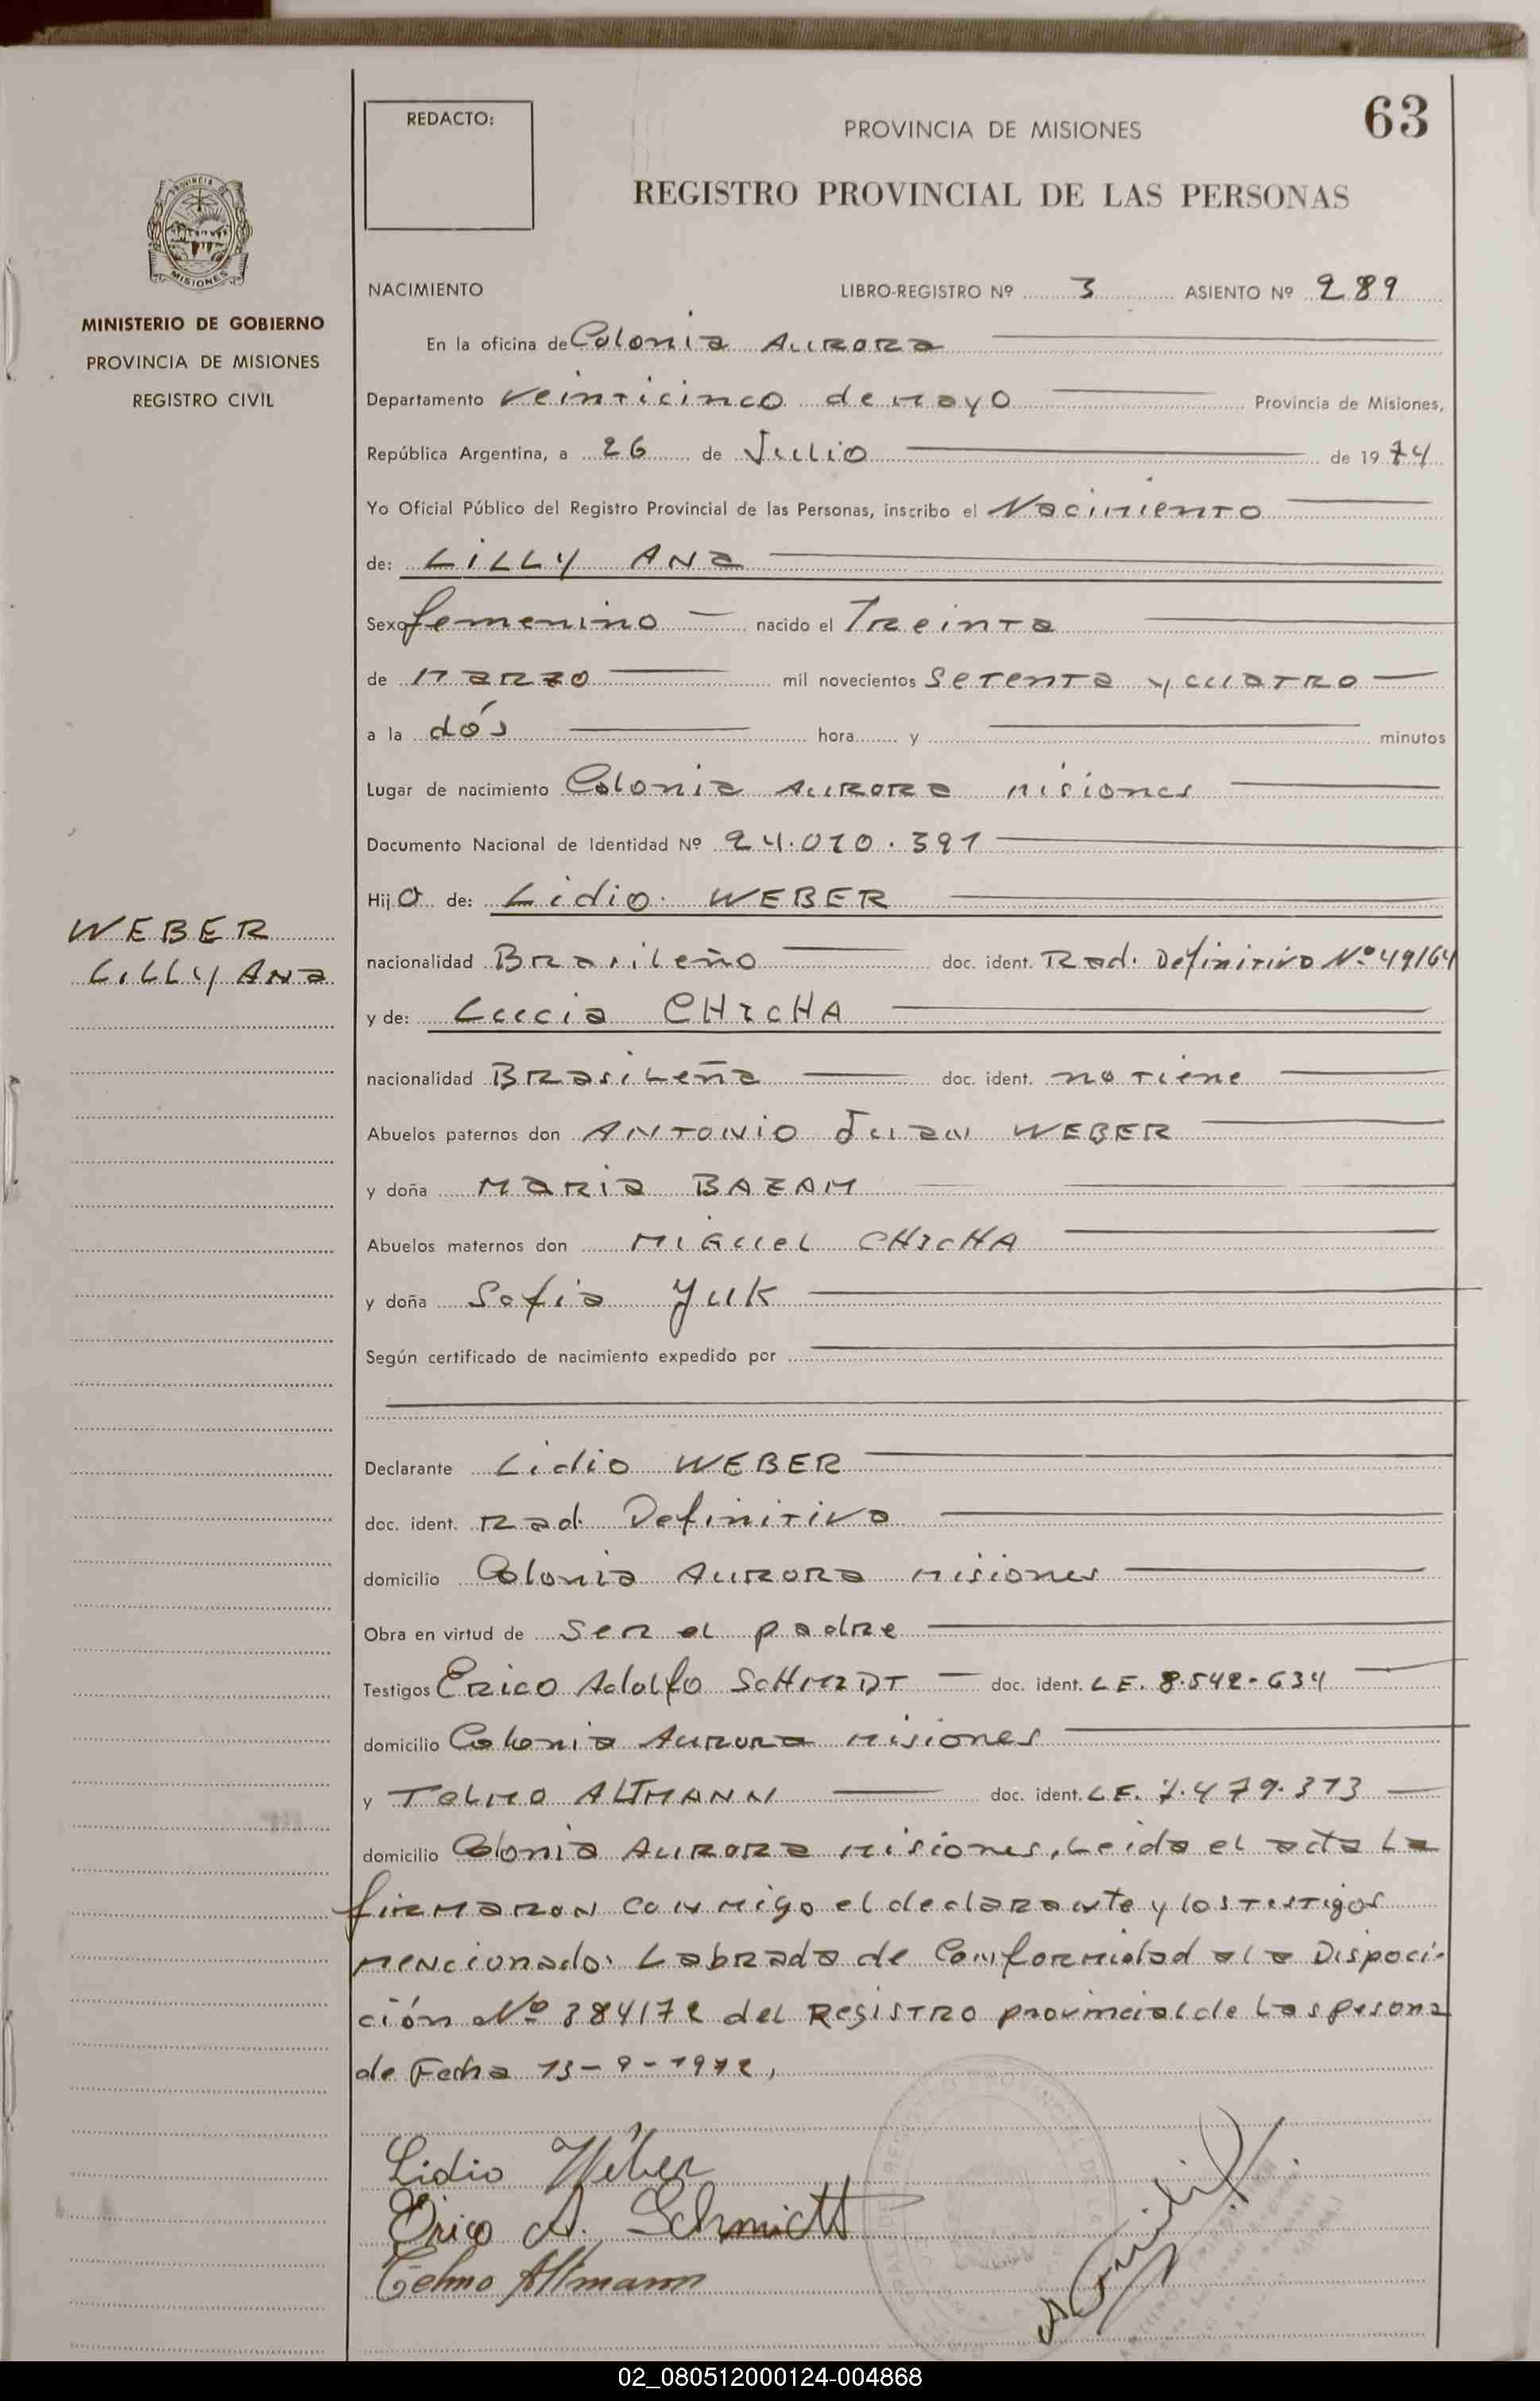 63
REDACTO:
PROVINCIA DE MISIONES
REGISTRO PROVINCIAL DE LAS PERSONAS
PROVINCIA DE
MISIONES
MINISTERIO DE GOBIERNO
PROVINCIA DE MISIONES
REGISTRO CIVIL
WEBER
LILLY ANA
NACIMIENTO LIBRO-REGISTRO Nº 3 ASIENTO Nº 289
En la oficina de Colonia Aurora
Departamento veinticinco de mayo Provincia de Misiones,
República Argentina, a 26 de Julio de 1974
Yo Oficial Público del Registro Provincial de las Personas, inscribo el Nacimiento
de: LILLY ANA
Sexo femenino nacido el Treinta
de Marzo mil novecientos setenta y cuatro
a la dós hora y minutos
Lugar de nacimiento Colonia Aurora Misiones
Documento Nacional de Identidad Nº 24.010.391
Hijo de: Lidio WEBER
nacionalidad Brasileño doc. ident. Rad. Definitivo Nº 49/64
y de: Lucia CHICHA
nacionalidad Brasileña doc. ident. no tiene
Abuelos paternos don ANTONIO Juan WEBER
y doña Maria BAZAM
Abuelos maternos don Miguel CHICHA
y doña Sofia Yuk
Según certificado de nacimiento expedido por
Declarante Lidio WEBER
doc. ident. Rad. Definitivo
domicilio Colonia Aurora Misiones
Obra en virtud de ser el padre
Testigos Erico Adolfo SCHMIDT doc. ident. L E. 8.542.634
domicilio Colonia Aurora Misiones
y TELMO ALTMANN doc. ident. L E. 7.479.313
domicilio Colonia Aurora Misiones, Leida el acta la
firmaron conmigo el declarante y los testigos
mencionado. Labrada de Conformidad a la Dispoci-
ción Nº 384172 del Registro provincial de las pesona
de Fecha 13-9-1972,
Lidio Wéber
Erico A. Schmidt
Telmo Altmann
02_080512000124-004868